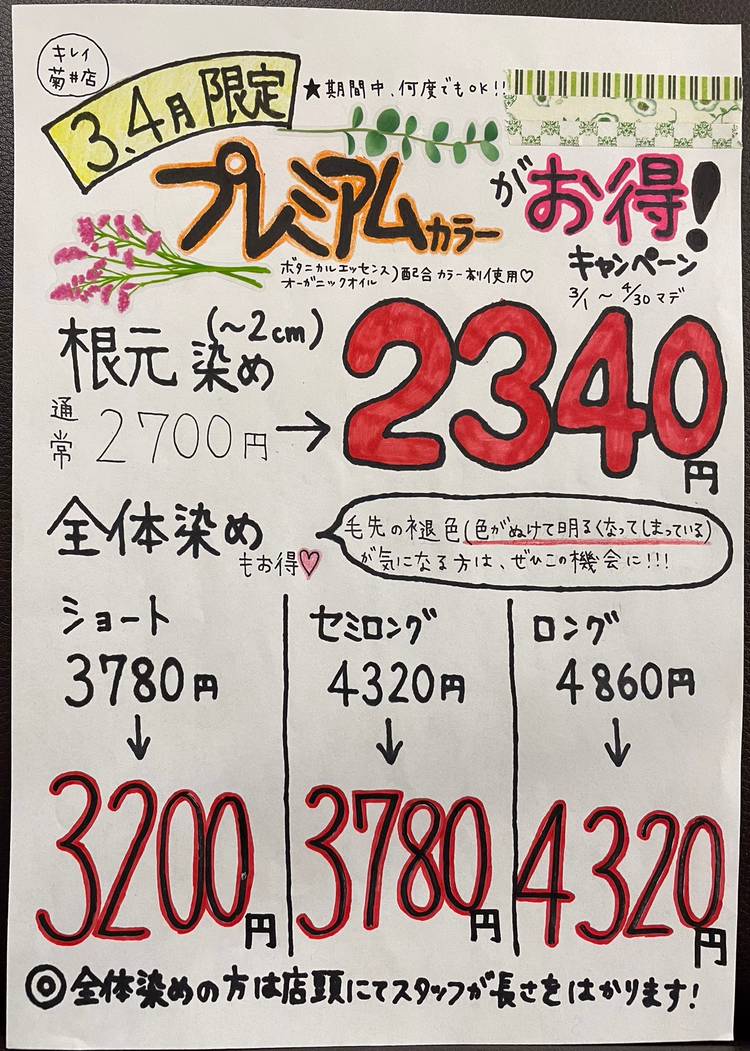 キレイ
菊井店
3.4月限定
★期間中、何度でもOK!!
プレミアムカラーがお得!
キャンペーン
3/1～4/30マデ
ボタニカルエッセンス
オーガニックオイル
)配合カラー剤使用♡
根元染め(～2cm)
通常2700円→2340円
全体染め
もお得♡
毛先の褪色(色がぬけて明るくなってしまっている)
が気になる方は、ぜひこの機会に!!!
ショート
3780円
↓
3200円
セミロング
4320円
↓
3780円
ロング
4860円
↓
4320円
◎全体染めの方は店頭にてスタッフが長さをはかります!